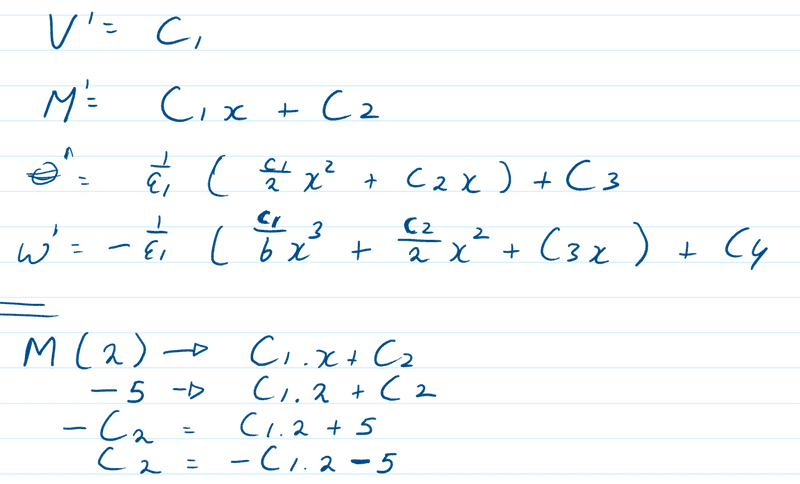 V' = C₁
M' = C₁x + C₂
θ' = 1/EI ( C₁/2 x² + C₂x ) + C₃
w' = - 1/EI ( C₁/6 x³ + C₂/2 x² + C₃x ) + C₄
M(2) → C₁.x + C₂
-5 → C₁.2 + C₂
-C₂ = C₁.2 + 5
C₂ = -C₁.2 - 5